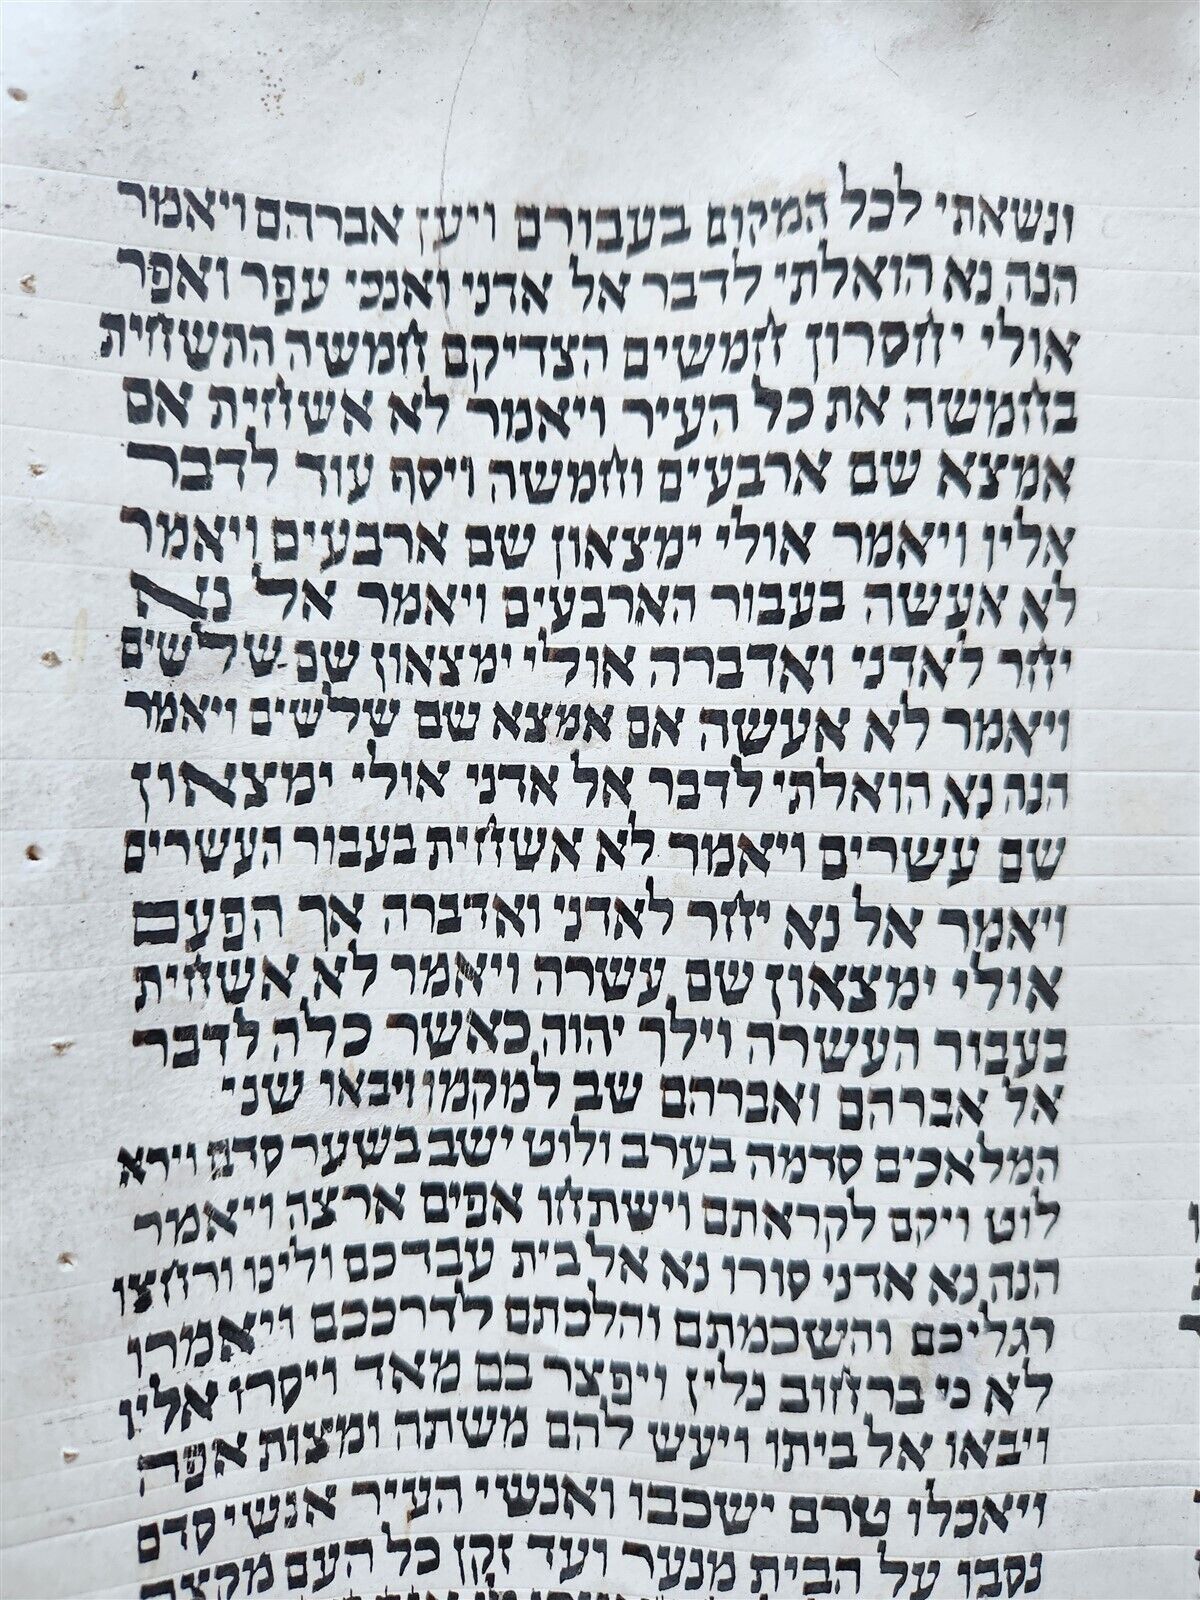 ונשאתי לכל המקום בעבורם ויען אברהם ויאמר
הנה נא הואלתי לדבר אל אדני ואנכי עפר ואפר
אולי יחסרון חמשים הצדיקם חמשה התשחית
בחמשה את כל העיר ויאמר לא אשחית אם
אמצא שם ארבעים וחמשה ויסף עוד לדבר
אליו ויאמר אולי ימצאון שם ארבעים ויאמר
לא אעשה בעבור הארבעים ויאמר אל נא
יחר לאדני ואדברה אולי ימצאון שם שלשים
ויאמר לא אעשה אם אמצא שם שלשים ויאמר
הנה נא הואלתי לדבר אל אדני אולי ימצאון
שם עשרים ויאמר לא אשחית בעבור העשרים
ויאמר אל נא יחר לאדני ואדברה אך הפעם
אולי ימצאון שם עשרה ויאמר לא אשחית
בעבור העשרה וילך יהוה כאשר כלה לדבר
אל אברהם ואברהם שב למקמו ויבאו שני
המלאכים סדמה בערב ולוט ישב בשער סדם וירא
לוט ויקם לקראתם וישתחו אפים ארצה ויאמר
הנה נא אדני סורו נא אל בית עבדכם ולינו ורחצו
רגליכם והשכמתם והלכתם לדרככם ויאמרו
לא כי ברחוב נלין ויפצר בם מאד ויסרו אליו
ויבאו אל ביתו ויעש להם משתה ומצות אפה
ויאכלו טרם ישכבו ואנשי העיר אנשי סדם
נסבו על הבית מנער ועד זקן כל העם מקצה